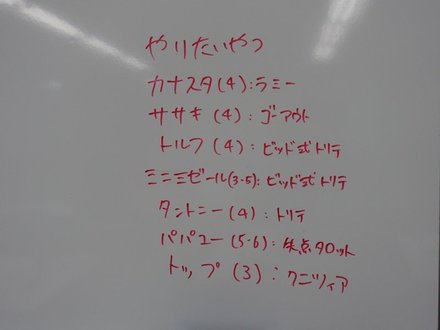 やりたいやつ
カナスタ(4):ラミー
ササキ(4):ゴーアウト
トルフ(4):ビッド式トリテ
ミニミゼール(3-5):ビッド式トリテ
タントニー(4):トリテ
パパユー(5-6):失点タロット
トップ(3):クニツィア